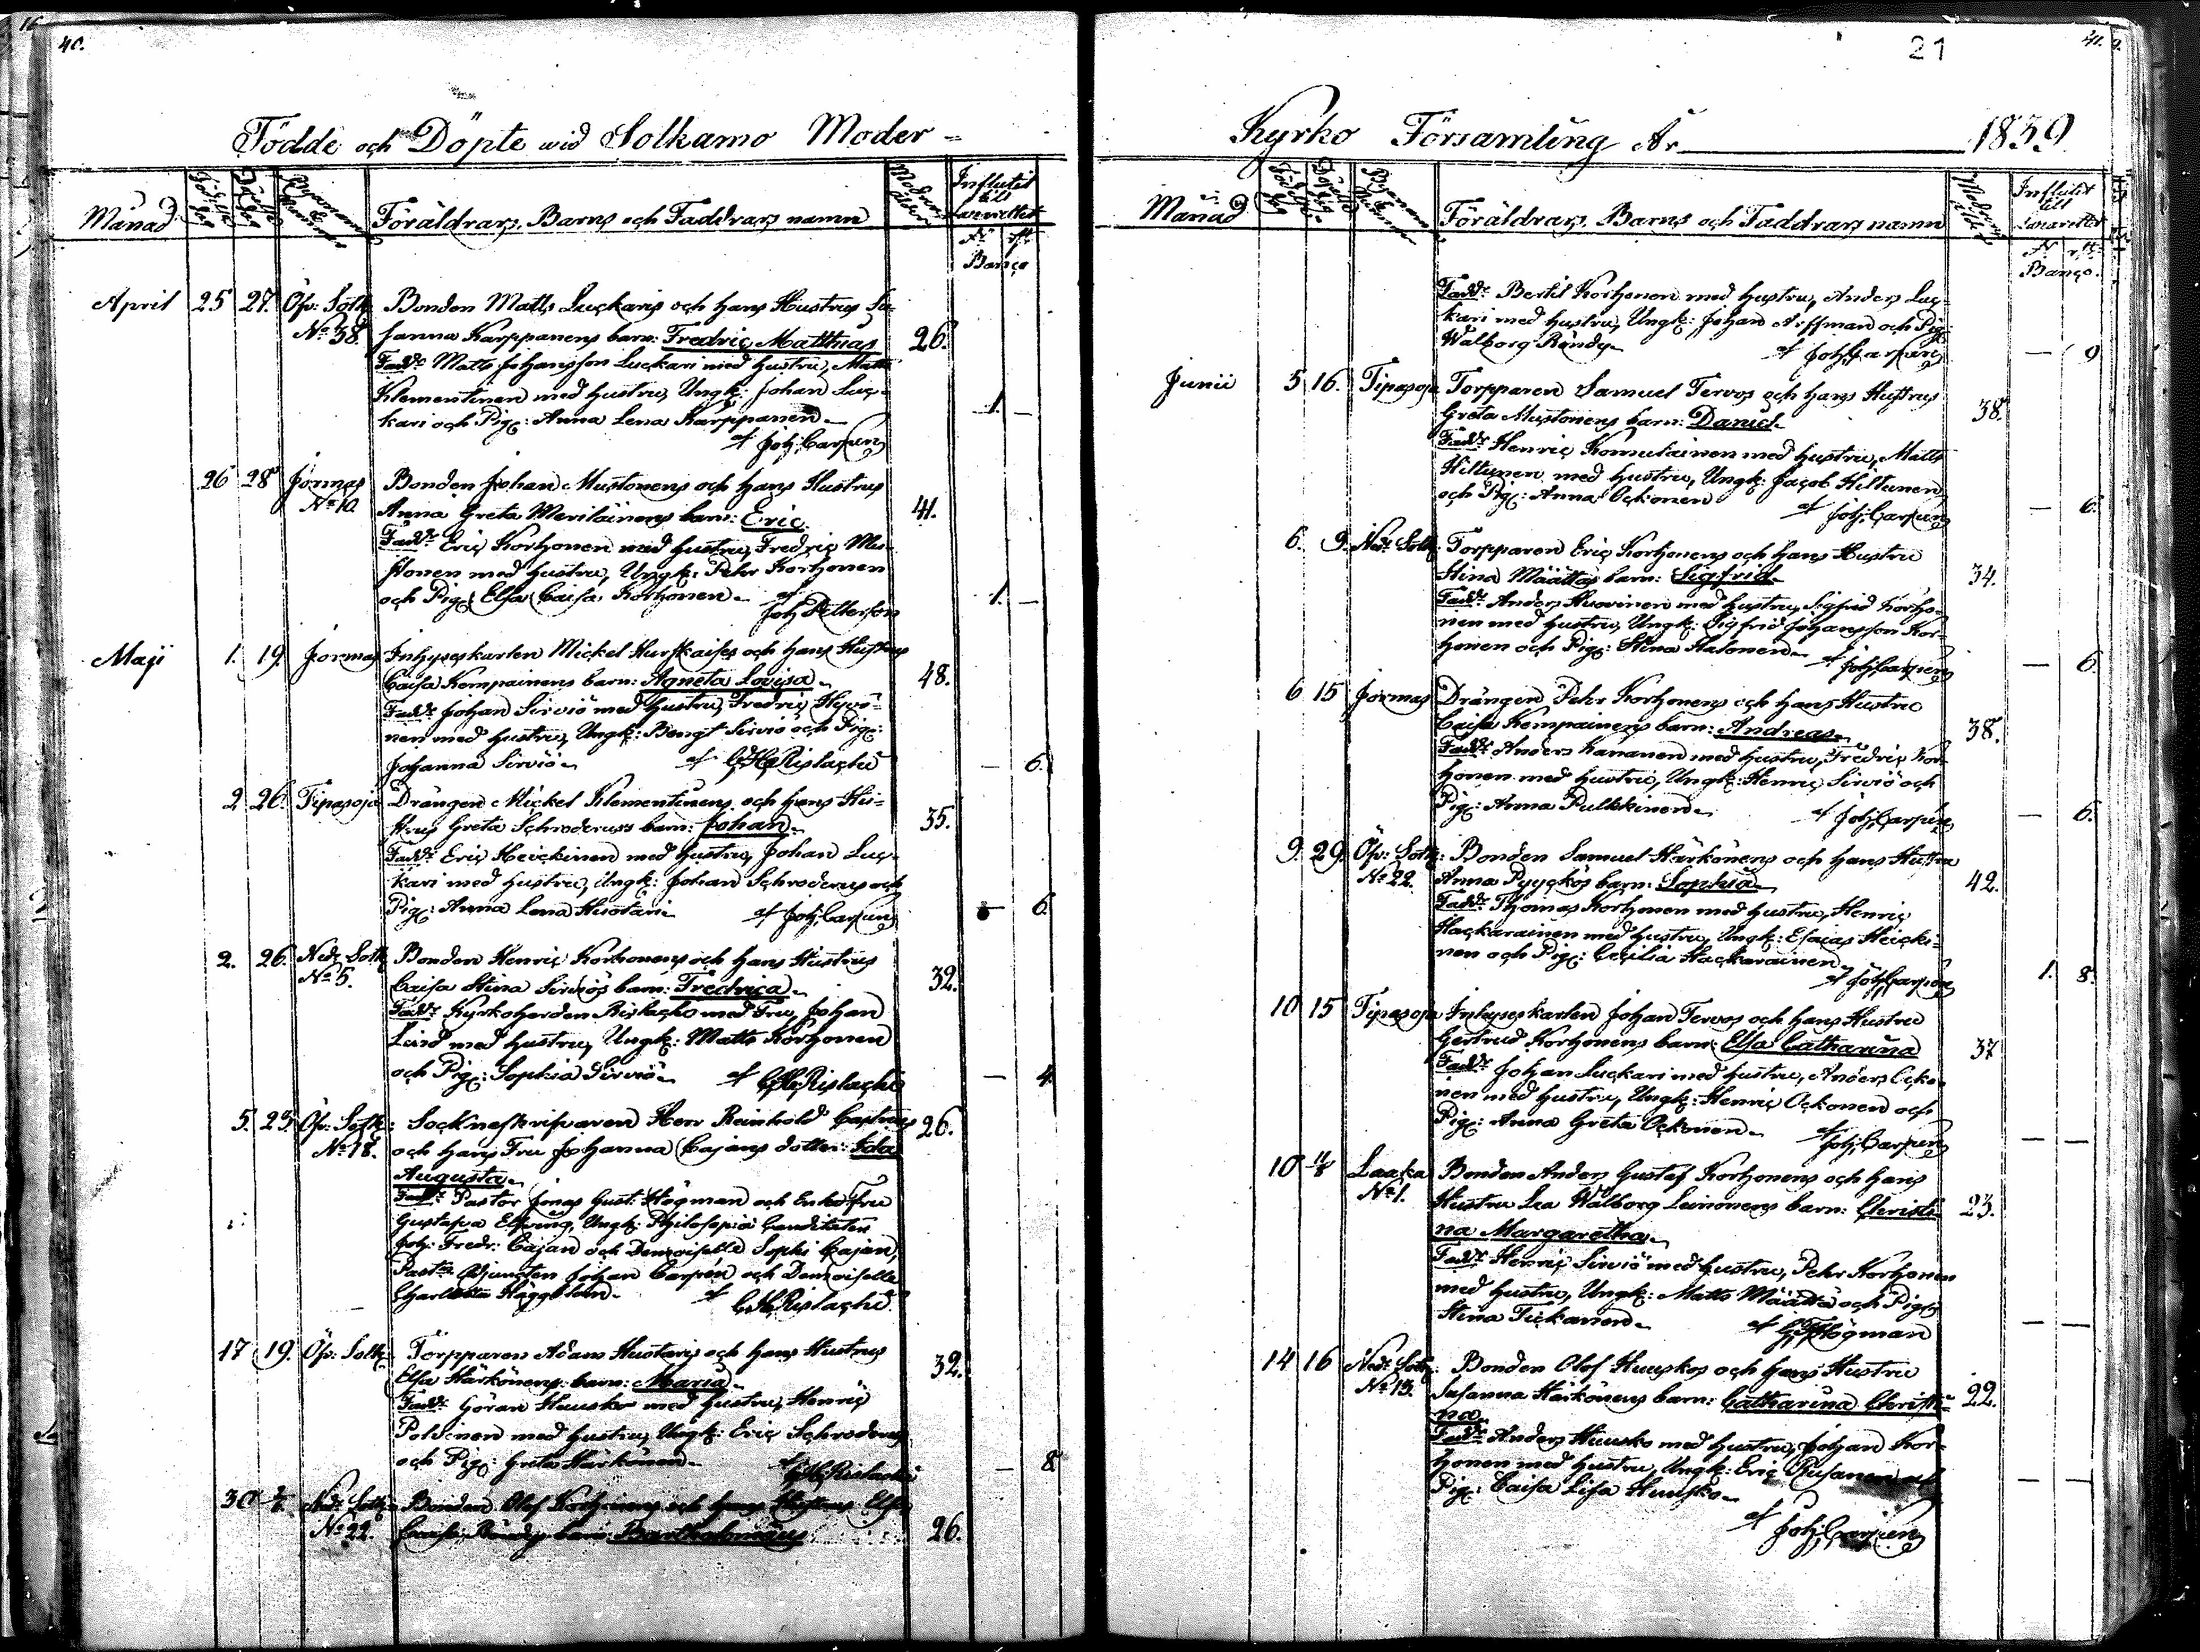 40.
Födde och Döpte wid Sotkamo Moder=
Månad
Födelse dag
Föräldrars, Barns och Faddrars namn
Moderns ålder
Influtit till Lazarettet
Banco
April 25 27. Öfr: Sotk: Bonden Matts Luckaris och hans Hustrus Su-
No 38. sanna Karppanens barn: Fredric Matthias 26.
Fadd: Matts Johansson Luckari med hustru, Matts
Klementinen med hustru, Ungk: Johan Luc-
kari och Pig: Anna Lena Karppanen 1. —
af Joh: Carpen
26 28 Jormas Bonden Johan Mustonens och hans Hustrus
No 10. Anna Greta Meriläinens barn: Eric 41.
Fadd: Eric Korhonen med hustru, Fredric Mu-
stonen med hustru, Ungk: Pehr Korhonen
och Pig: Elsa Caisa Korhonen 1. —
af Joh Petterson
Maji 1. 19. Jormas Inhyseskarlen Mickel Hurskaises och hans Hustrus
Caisa Kempainens barn: Agneta Lovisa 48.
Fadd: Johan Sirviö med hustru, Fredric Hyvö-
nen med hustru, Ungk: Bengt Sirviö och Pig:
Johanna Sirviö af Rislachi — 6.
2 26. Tipasoja Drängen Mickel Klementinens och hans Hu-
strus Greta Schroderus's barn: Johan 35.
Fadd: Eric Heickinen med hustru, Johan Luc-
kari med hustru, Ungk: Johan Schroderus och
Pig: Anna Lena Huotari af Joh: Carpen — 6.
2. 26. Ned: Sotk: Bonden Henric Korhonens och hans Hustrus
No 5. Caisa Stina Sirviös barn: Fredrica 32.
Fadd: Kyrkoherden Rislachi med Fru, Johan
Lind med hustru, Ungk: Matts Korhonen
och Pig: Sophia Sirviö af Rislachi — 4
5. 25 Öfr: Sotk: Socknesskrifvaren Herr Reinhold Castrens 26.
No 18. och hans Fru Johanna Cajans dotter: Ida
Augusta
Fadd: Pastor Jonas Gust: Högman och Enke Fru
Gustafva Elfving, Ungk: Philosophiæ Canditaten
Joh: Fredr: Cajan och Demoiselle Sophi Cajan,
Pastors Adjuncten Johan Carpén och Demoiselle
Charlotta Häggblom af Rislachi
17 19. Öfr: Sotk: Torpparen Adam Huotaris och hans Hustrus
Elsa Härkönens barn: Maria 32.
Fadd: Göran Huusko med hustru, Henric
Polvinen med hustru, Ungk: Eric Schroderus
och Pig: Greta Härkönen — 8
af Rislachi
30 Ned: Sotk: Bonden Olof Korhonens och hans Hustrus Elsa
No 22. Caisa Rändys barn: Bartholomeus 26.
21
41.
Kyrko Församling År 1839
Månad
Föräldrars, Barns och Faddrars namn
Influtit till Lazarettet
Banco.
Fadd: Bertil Korhonen med hustru, Anders Luc-
kari med hustru, Ungk: Johan Arffman och Pig:
Walborg Rändy
af Joh: Carpen — 9
Junii 5 16. Tipasoja Torpparen Samuel Tervos och hans Hustrus
Greta Mustonens barn: Daniel 38.
Fadd: Henric Komulainen med hustru, Matts
Hiltunen med hustru, Ungk: Jacob Hiltunen
och Pig: Anna Ockonen — 6.
af Joh: Carpen
6. 9. Ned: Sotk: Torpparen Eric Korhonens och hans Hustru
Stina Määttäs barn: Sigfrid 34.
Fadd: Anders Huovinen med hustru, Sigfrid Korho-
nen med hustru, Ungk: Sigfrid Johansson Kor-
honen och Pig: Stina Halonen — 6.
af Joh: Carpen
6 15 Jormas Drängen Pehr Korhonens och hans Hustru
Caisa Kempainens barn: Andreas 38.
Fadd: Anders Kananen med hustru, Fredric Kor-
honen med hustru, Ungk: Henric Sirviö och
Pig: Anna Pulkkinen af Joh: Carpen — 6.
9. 29. Öfr: Sotk: Bonden Samuel Härkönens och hans Hustru
No 22. Anna Pyyckös barn: Sophia 42.
Fadd: Thomas Korhonen med hustru, Henric
Hackarainen med hustru, Ungk: Esaias Heicki-
nen och Pig: Cecilia Hackarainen 1. 8.
af Joh: Carpen
10 15 Tipasoja Inhyseskarlen Johan Tervos och hans Hustru
Gertrud Korhonens barn: Elsa Catharina 37
Fadd: Johan Luckari med hustru, Anders Ocko-
nen med hustru, Ungk: Henric Ockonen och
Pig: Anna Greta Ockonen — —
af Joh: Carpen
10 Laacka Bonden Anders Gustaf Korhonens och hans
No 1. Hustru Lea Walborg Leinonens barn: Christi- 23.
na Margaretha
Fadd: Henric Sirviö med hustru, Pehr Korhonen
med hustru, Ungk: Matts Määttä och Pig:
Stina Tickanen — —
af Högman
14 16 Ned: Sotk: Bonden Olof Huuskos och hans Hustru
No 13. Susanna Härkönens barn: Catharina Christi- 22.
na
Fadd: Anders Huusko med hustru, Johan Kor-
honen med hustru, Ungk: Eric och
Pig: Caisa Lisa Huusko — —
af Joh: Carpen